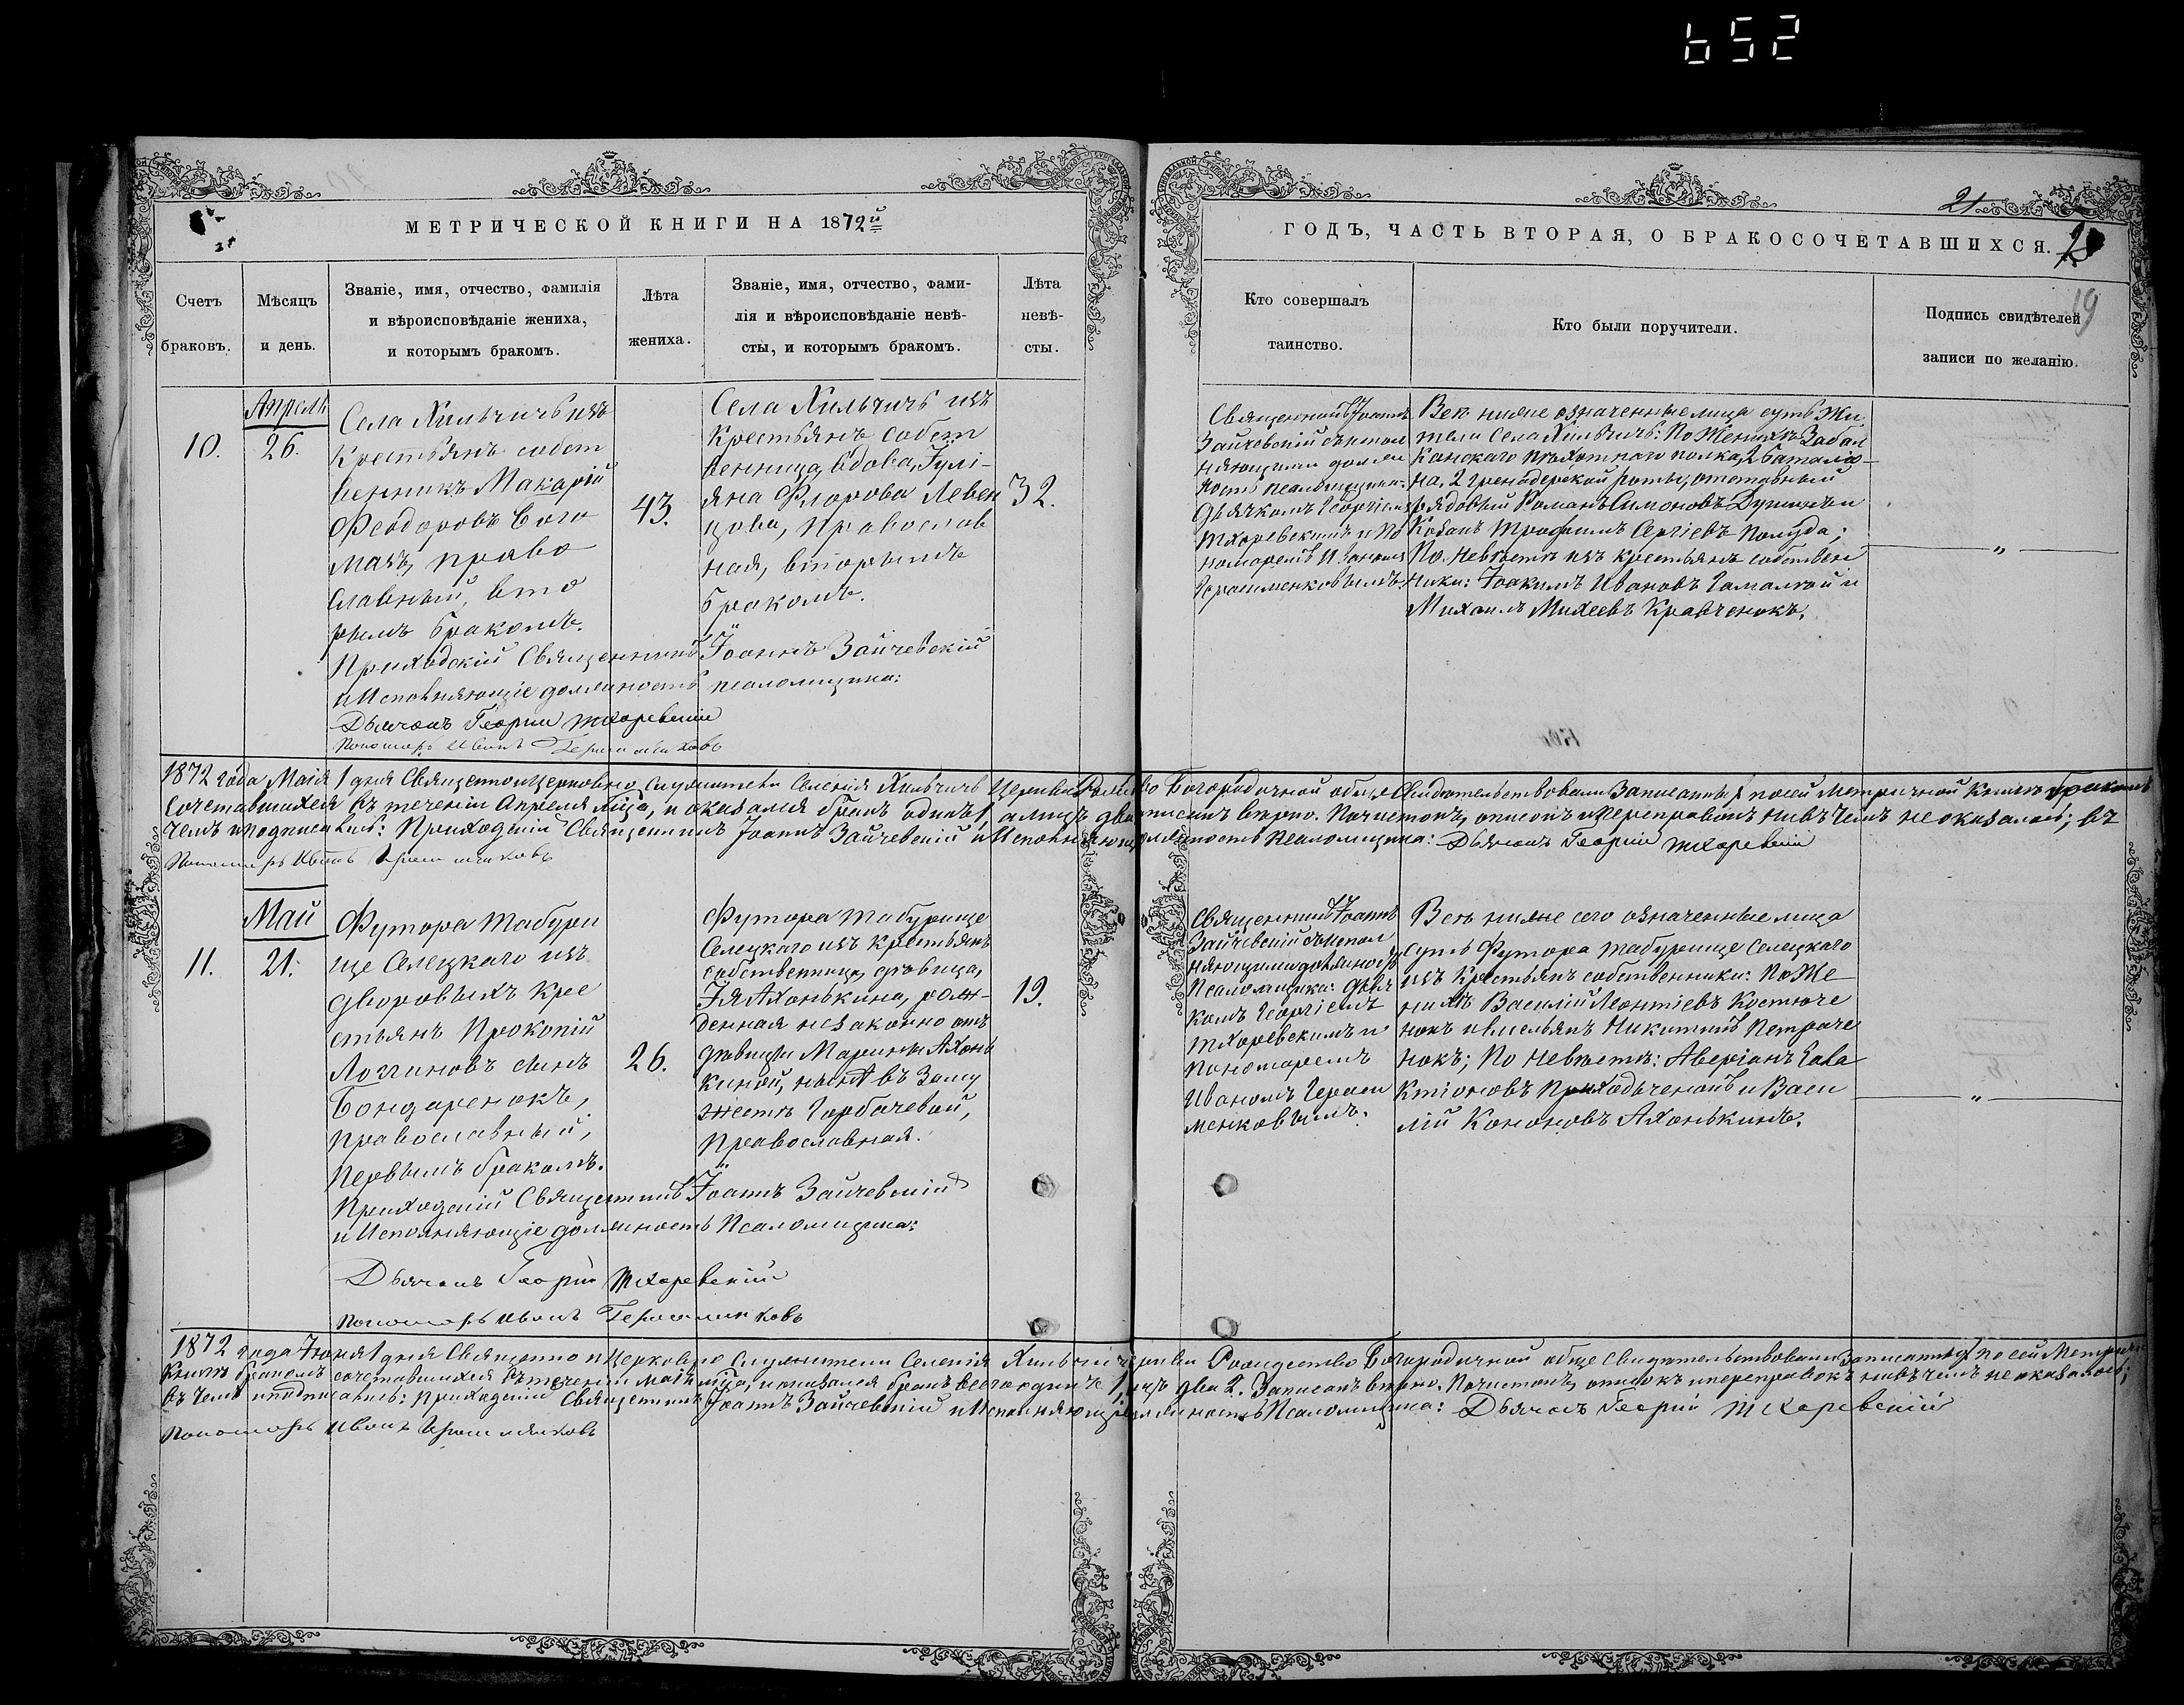 652
21
19
МЕТРИЧЕСКОЙ КНИГИ НА 1872й
ГОДЪ, ЧАСТЬ ВТОРАЯ, О БРАКОСОЧЕТАВШИХСЯ.
Счетъ
браковъ.
Мѣсяцъ
и день.
Званіе, имя, отчество, фамилія
и вѣроисповѣданіе жениха,
и которымъ бракомъ.
Лѣта
жениха.
Званіе, имя, отчество, фами-
лія и вѣроисповѣданіе невѣ-
сты, и которымъ бракомъ.
Лѣта
невѣ-
сты.
Кто совершалъ
таинство.
Кто были поручители.
Подпись свидѣтелей
записи по желанію.
10.
Апрель
26.
Села Хильчичь изъ
Крестьянъ собст
венникъ Макарій
Феодоровъ Бого
мазъ, право
славный, вто
рымъ бракомъ.
43.
Села Хильчичь изъ
Крестьянъ собст
венница, вдова, Іулі-
яна Флорова Левен
цова, Православ
ная, вторымъ
бракомъ.
32.
Священникъ Іоаннъ
Зайчевскій съ испол
няющими должн
ность псаломщика:
Дьячкомъ Георгіемъ
Тхоревскимъ и По
номаремъ Иваномъ
Герасименковымъ.
Всѣ ниже означенные лица суть Жи
тели Села Хильчичь: По Женихѣ Забал
Канскаго пѣхотнаго полка, 2 баталіо-
на, 2 гренадерской роты, отставный
рядовый Романъ Симоновъ и
Козакъ Трофимъ Сергіевъ Полуда;
По Невѣстѣ изъ крестьянъ собствен
ники: Іоакимъ Ивановъ Гамалѣй и
Михаилъ Михеевъ Кравченокъ.
„
Приходскій Священникъ Іоаннъ Зайчевскій
и Исполняющіе должность псаломщика:
Дьячокъ Георгій Тхоревскій
Пономарь Иванъ Герасименковъ
1872 года Маія 1 дня Священно и Церковно служители Селенія Хильчичь Церкви Рождество Богородичной обще свидѣтельствовали Записанныхъ по сей Метричной Книгѣ бракомъ
Сочетавшихся въ теченіи Апреля м-ца, и оказался бракъ одинъ 1, а лицъ два записанъ вѣрно. Почистокъ, описокъ и переправокъ ни въ чемъ не оказалось; въ
Чемъ и подписались: Приходскій Священникъ Іоаннъ Зайчевскій и Исполняющіе должность Псаломщика: Дьячокъ Георгій Тхоревскій
Пономарь Иванъ Герасименковъ
11.
Май
21.
Футора Табури
ще Селецкаго изъ
дворовыхъ кре
стьянъ Прокопій
Логгиновъ сынъ
Бондаренокъ,
Православный,
Первымъ бракомъ.
26.
Футора Табурище
Селецкаго изъ крестьянъ
собственница, дѣвица,
Ія Ахонькина, рож-
денная незаконно отъ
дѣвицы Марины Ахонь
киной, нынѣ въ Заму
жестѣ Горбачевой,
Православная.
19.
Священникъ Іоаннъ
Зайчевскій съ испол
няющими должность
Псаломщика: Дьяч
комъ Георгіемъ
Тхоревскимъ и
Пономаремъ
Иваномъ Гераси
менковымъ.
Всѣ ниже сего означенные лица
суть Футора Табурище Селецкаго
изъ Крестьянъ собственники: По Же
нихѣ Василій Леонтіевъ Костюче
нокъ и Емельянъ Никитинъ Петраче
нокъ; По Невѣстѣ: Аверіанъ Гала
Ктіоновъ Приходьченокъ и Васи
лій Кононовъ Ахонькинъ.
„
Приходскій Священникъ Іоаннъ Зайчевскій
и Исполняющіе должность Псаломщика:
Дьячокъ Георгій Тхоревскій
Пономарь Иванъ Герасименковъ
1872 года Іюня 1 дня Священно и Церковно служители Селенія Хильчичь Церкви Рождество Богородичной обще свидѣтельствовали Записанныхъ по сей Метрич
Книгѣ бракомъ сочетавшихся въ теченіи Маія м-ца, и оказался бракъ всего одинъ 1, лицъ два 2. Записанъ вѣрно. Почистокъ, описокъ и переправокъ ни въ чемъ не оказалось;
въ Чемъ и подписались: Приходскій Священникъ Іоаннъ Зайчевскій и Исполняющіе должность Псаломщика: Дьячокъ Георгій Тхоревскій
Пономарь Иванъ Герасименковъ